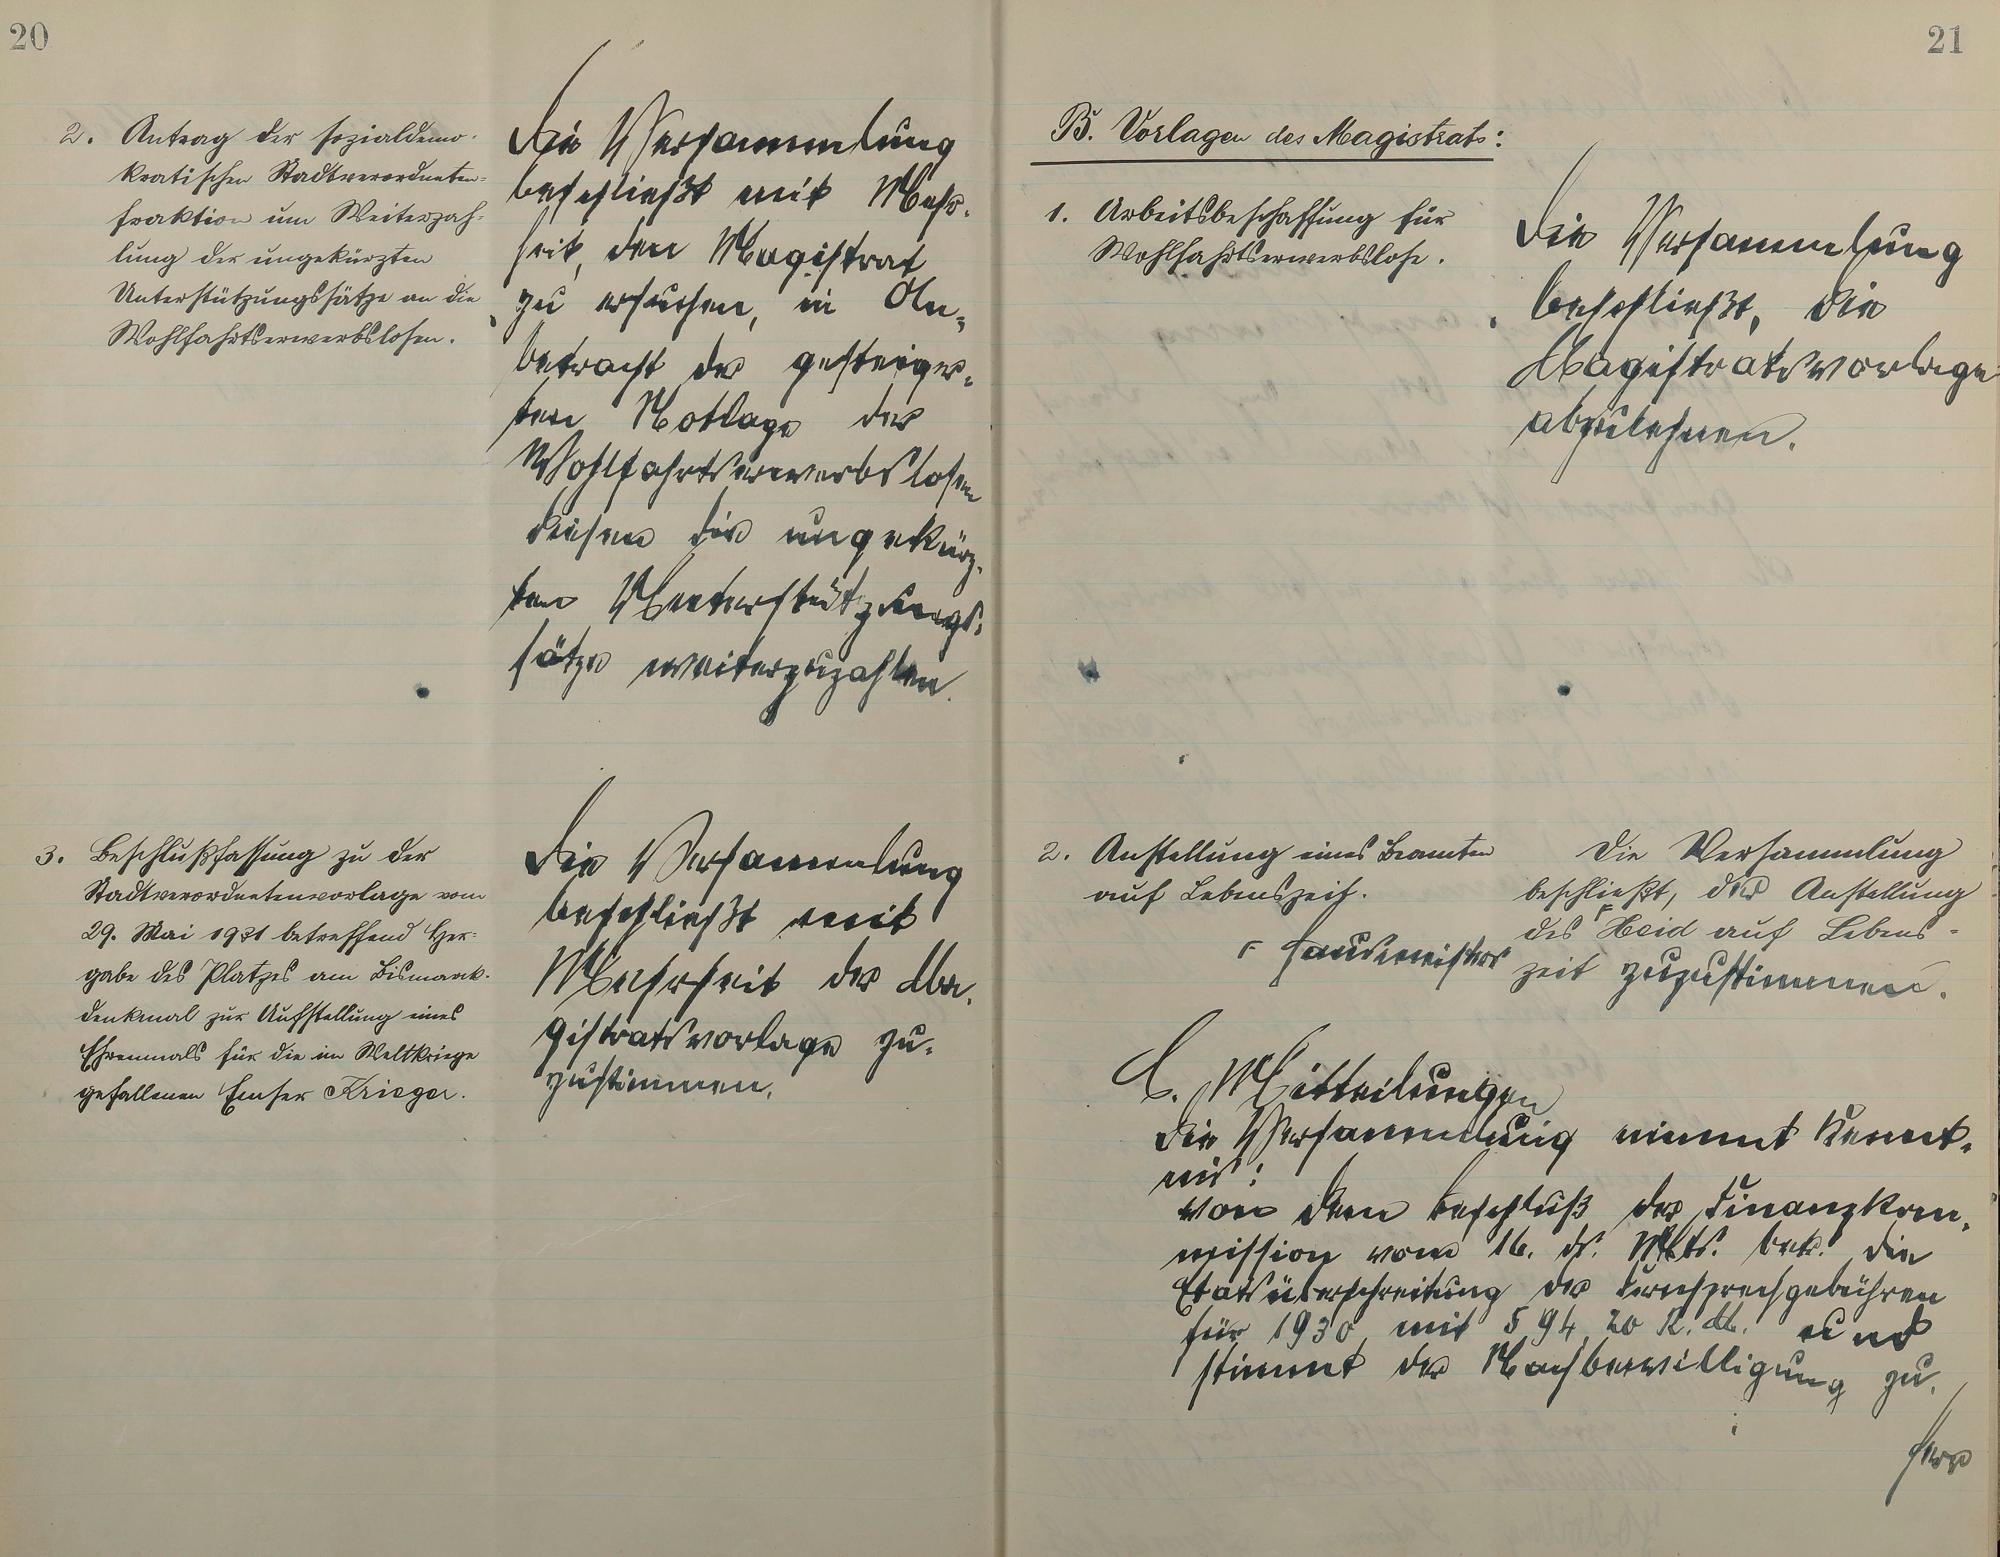 20
2. Antrag der sozialdemo-
kratischen Stadtverordneten-
fraktion um Weiterzah-
lung der ungekürzten
Unterstützungssätze an die
Wohlfahrtserwerbslosen.
Die Versammlung
beschließt mit Mehr-
heit, den Magistrat
zu ersuchen, in An-
betracht der gesteiger-
ten Notlage der
Wohlfahrtserwerbslosen
diesen die ungekürz-
ten Unterstützungs-
sätze weiterzuzahlen.
3. Beschlußfassung zu der
Stadtverordnetenvorlage vom
29. Mai 1931 betreffend Her-
gabe des Platzes am Bismarck-
denkmal zur Aufstellung eines
Ehrenmals für die im Weltkriege
gefallenen Emser Krieger.
Die Versammlung
beschließt mit
Mehrheit der Ma-
gistratsvorlage zu-
zustimmen.
21
B. Vorlagen des Magistrats:
1. Arbeitsbeschaffung für
Wohlfahrtserwerbslose.
Die Versammlung
beschließt, die
Magistratsvorlage
abzulehnen.
2. Anstellung eines Beamten
auf Lebenszeit.
Die Versammlung
beschließt, der Anstellung
des Heid auf Lebens-
zeit zuzustimmen.
Hausmeisters
C. Mitteilungen
Die Versammlung nimmt Kennt-
nis:
von dem Beschluß der Finanzkom-
mission vom 16. ds. Mts. betr. die
Etatsüberschreitung der Fernsprechgebühren
für 1930 mit 594,20 R.M. und
stimmt der Nachbewilligung zu.